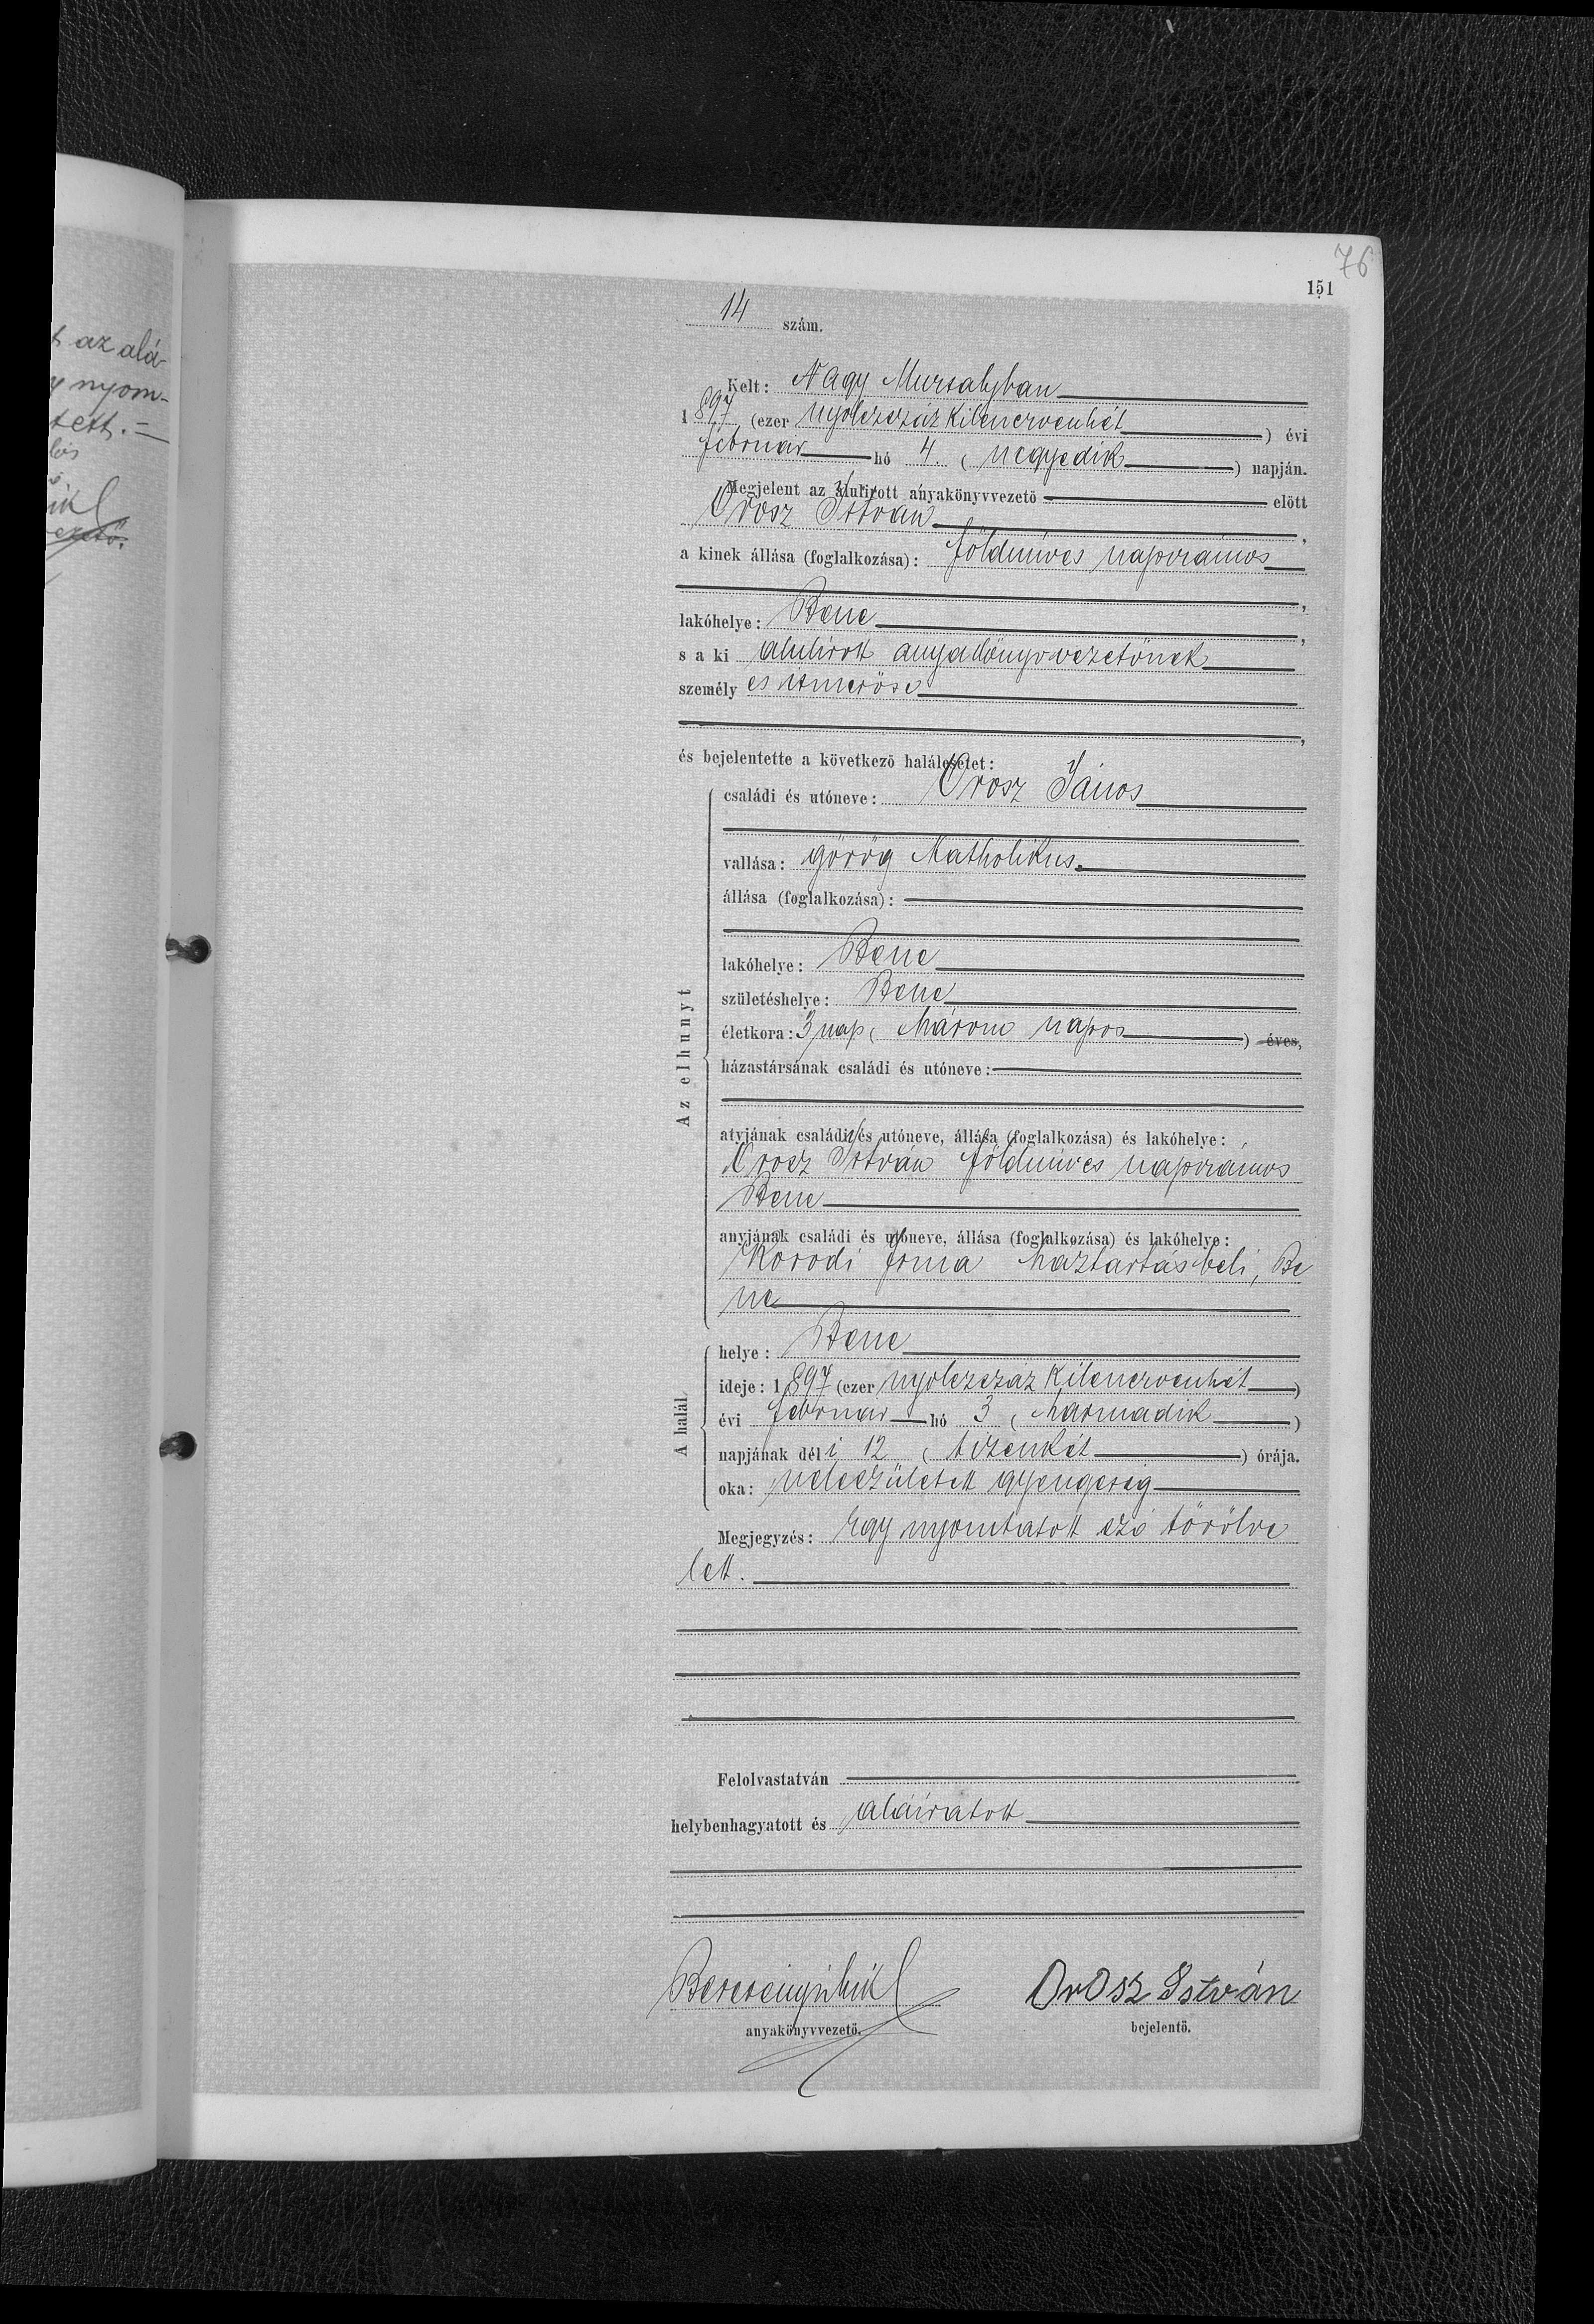 t az alá-
y nyom-
tett. =
76
151
14 szám.
Kelt: Nagy Muzsalyban
1897 (ezer nyolczszáz kilenczvenhét) évi
február hó 4. (negyedik) napján.
Megjelent az alulirott anyakönyvvezető előtt
Orosz István,
a kinek állása (foglalkozása): földmíves napszámos
,
lakóhelye: Bene,
s a ki alulirott anyakönyvvezetőnek
személyes ismerőse
,
és bejelentette a következő halálesetet:
Az elhunyt
családi és utóneve: Orosz János
vallása: görög katholikus.
állása (foglalkozása):
lakóhelye: Bene
születéshelye: Bene
életkora: 3 nap (három napos) éves,
házastársának családi és utóneve:
atyjának családi és utóneve, állása (foglalkozása) és lakóhelye:
Orosz István földmíves napszámos
Bene
anyjának családi és utóneve, állása (foglalkozása) és lakóhelye:
Korodi Irma háztartásbeli, Be
ne
A halál
helye: Bene
ideje: 1897 (ezer nyolczszáz kilenczvenhét)
évi február hó 3 (harmadik)
napjának déli 12 (tizenkét) órája.
oka: veleszületett gyengeség
Megjegyzés: Egy nyomtatott szó törölve
lett.
Felolvastatván
helybenhagyatott és aláíratott
Orosz István
anyakönyvvezető.
bejelentő.